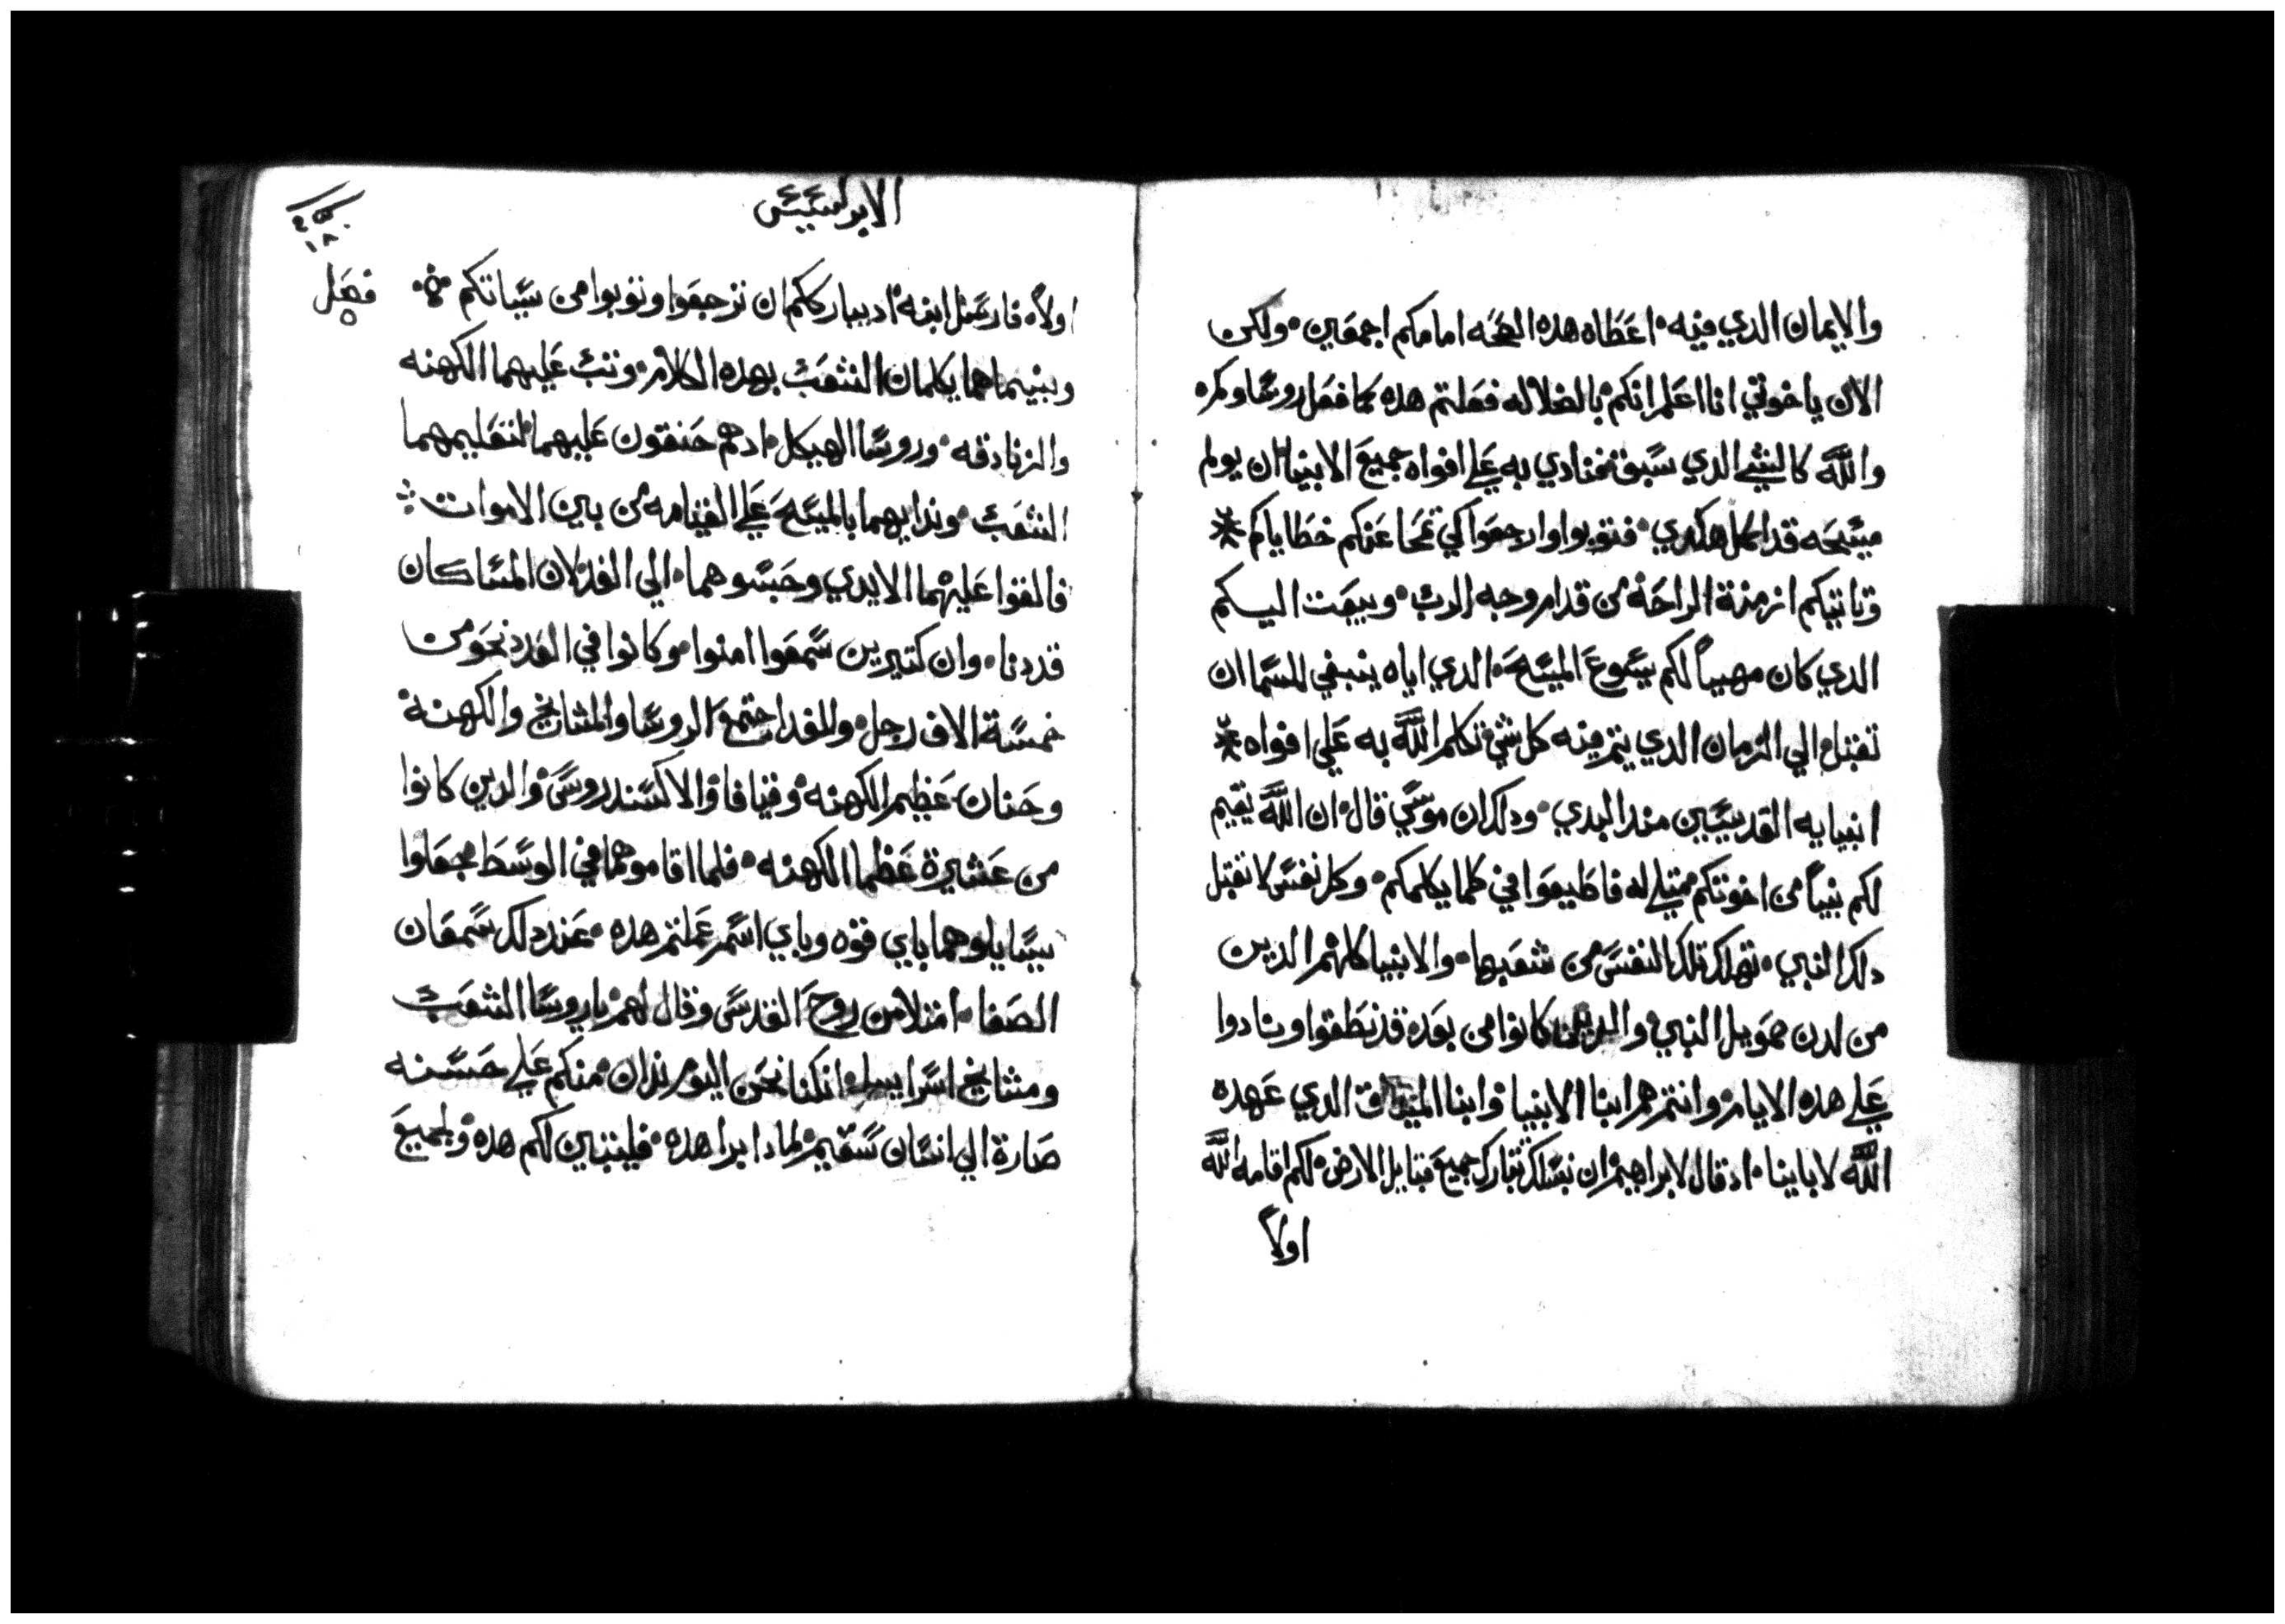 والايمان الدي فيه • اعطاه هده الصحه امامكم اجمعين • ولكن
الان ياخوتي انا اعلم انكم بالضلاله فعلتم هده كما فعل روساوكم •
والله كالشي الدي سبق فنادي به علي افواه جميع الانبيا ان يولم
مسيحه قد اكمل هكدي • فتوبوا وارجعوا كي تمحا عنكم خطاياكم ⁕
وتاتيكم ازمنة الراحة من قدام وجه الرب • ويبعت اليكم
الدي كان مهيياً لكم يسوع المسيح • الدي اياه ينبغي للسما ان
تقبل الي الزمان الدي يتم فيه كل شي تكلم الله به علي افواه ⁕
انبيايه القديسين مند البدي • ودلك ان موسي قال ان الله يقيم
لكم نبياً من اخوتكم متلي له فاطيعوا في كلما يكلمكم • وكل نفس لا تقبل
دلك النبي • تهلك تلك النفس من شعبها • والانبيا كلهم الدين
من لدن صمويل النبي والدين كانوا من بعده قد نطقوا ونادوا
علي هده الايام • وانتم هم ابنا الانبيا • وابنا الميتاق الدي عهده
الله لاباينا • اد قال لابراهيم ان بنسلك تتبارك جميع قبايل الارض • لكم اقامه الله
اولاً
الابركسيس
فصل
٥
اولاً • فارسل ابنه اد يبارككم ان ترجعوا وتوبوا من سياتكم
وبينما هما يكلمان الشعب بهده الكلام • وتب عليهما الكهنه
والزنادقه • وروسا الهيكل • ادهم حنقون عليهما • لتعليمهما
الشعب • وندايهما بالمسيح علي القيامه من بين الاموات
فالقوا عليهما الايدي وحبسوهما • الي الغد • لان المسا كان
قد دنا • وان كتيرين سمعوا امنوا • وكانوا في العدد نحو من
خمسة الاف رجل • وللغد اجتمع الروسا والمشايخ والكهنة
وحنان عظيم الكهنه • وقيافا • والاكسندروس • والدين كانوا
من عشيرة عظما الكهنه • فلما اقاموهما في الوسط • جعلوا
يسايلوهما باي قوه وباي اسم عملتم هده • عند دلك سمعان
الصفا • امتلا من روح القدس وقال لهم ياروسا الشعب
ومشايخ اسراييل • اننا نحن اليوم ندان • منكم علي حسنه
صارة الي انسان سقيم • لمادا برا هده • فليتبين لكم هده • ولجميع